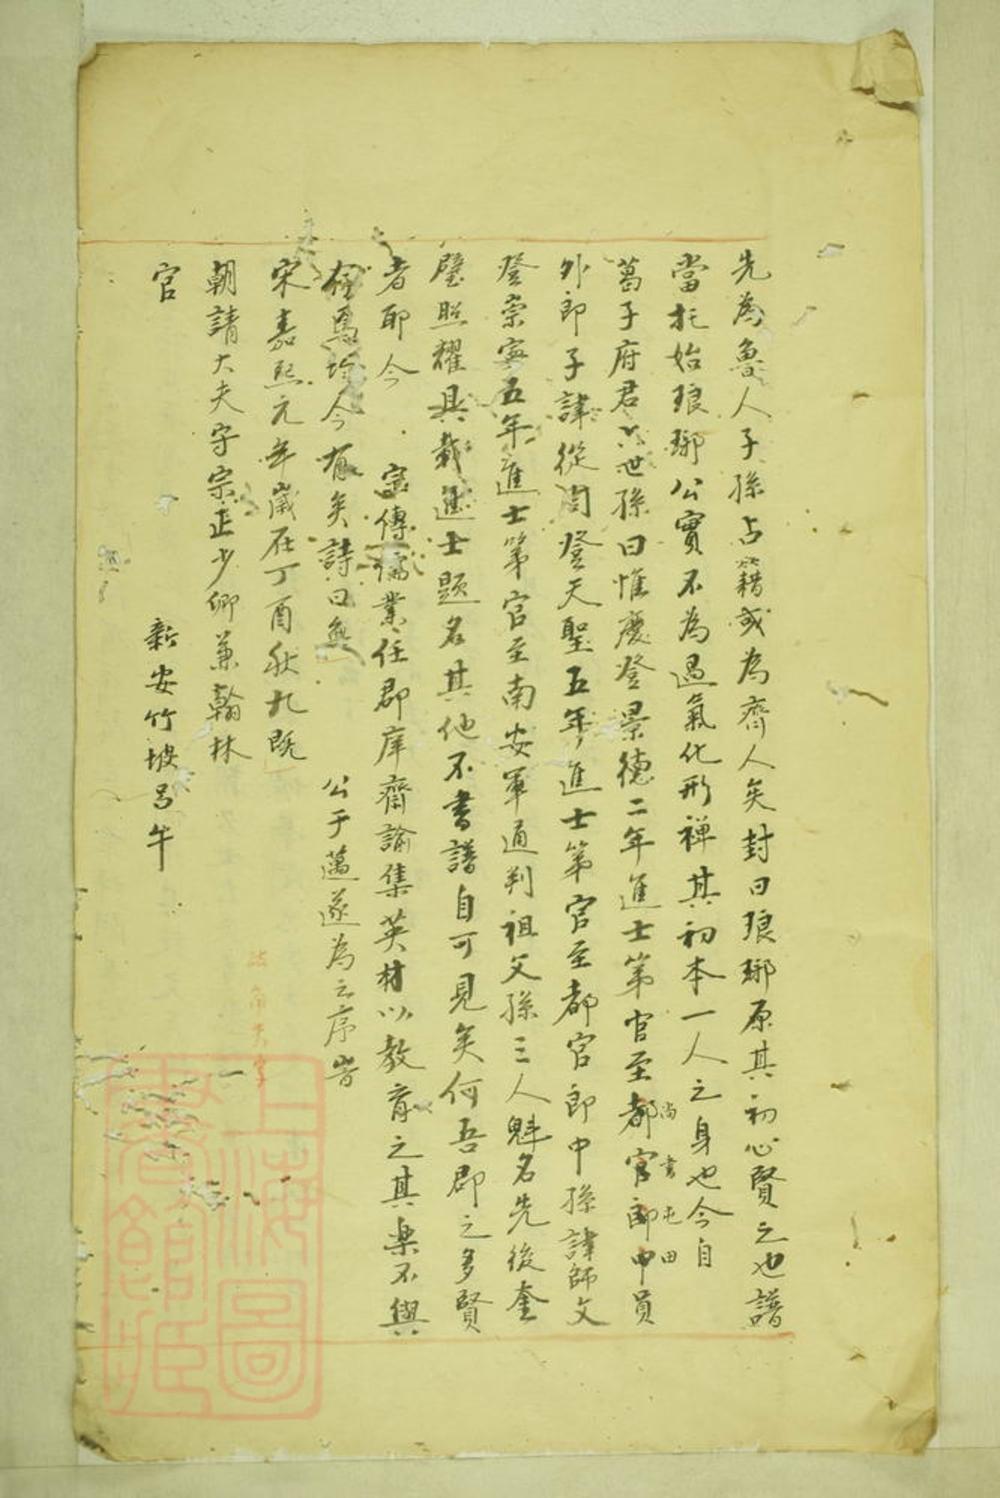 先為魯人子孫占籍或為齊人矣封曰琅琊原其初心賢之也譜
當托始琅琊公實不為過氣化形禅其初本一人之身也今自
葛子府君六世孫曰惟慶登景德二年進士第官至都官郎中員
尚書屯田
外郎子諱從周登天聖五年進士第官至都官郎中孫諱師文
登崇寧五年進士第官至南安軍通判祖父孫三人魁名先後奎
璧照耀具載進士題名其他不書譜自可見矣何吾郡之多賢
者耶今 宗傳儒業任郡庠齋諭集英材以教育之其樂不與
今有矣詩曰無 公于邁遂為之序峕
宋嘉熙元年歲在丁酉秋九既
朝請大夫守宗正少卿兼翰林
官 新安竹坡呂午
上海圖書館